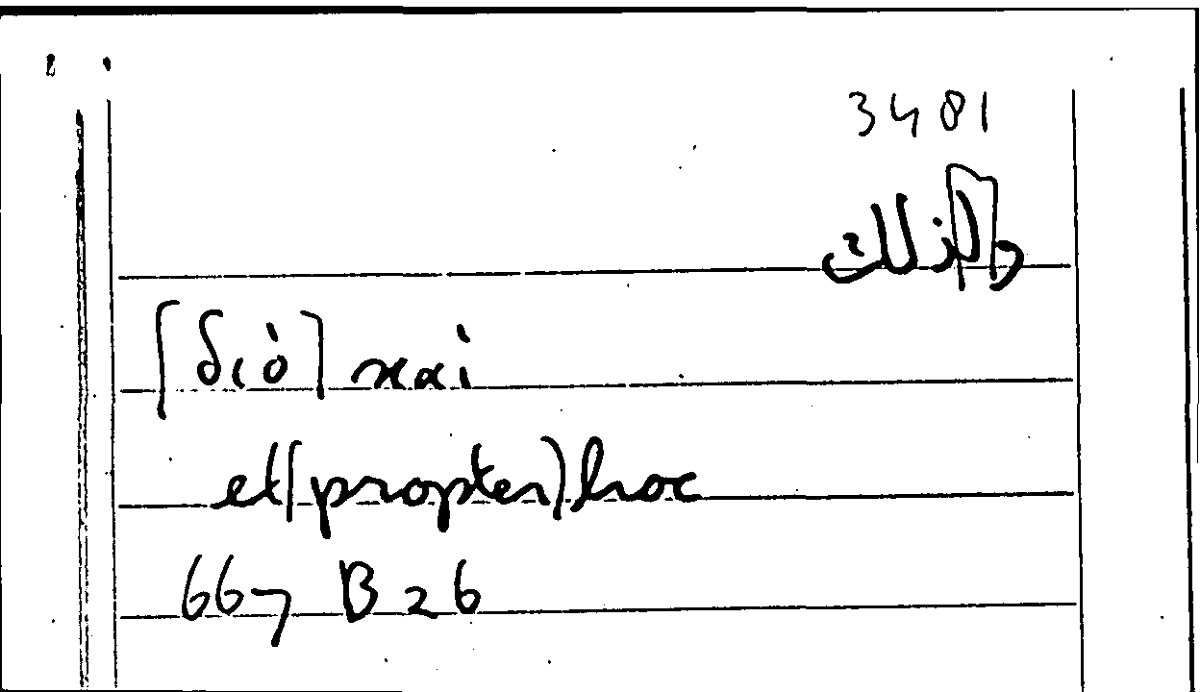 3481
ولذلك
[διὸ] καὶ
et(propter)hoc
667 B 26